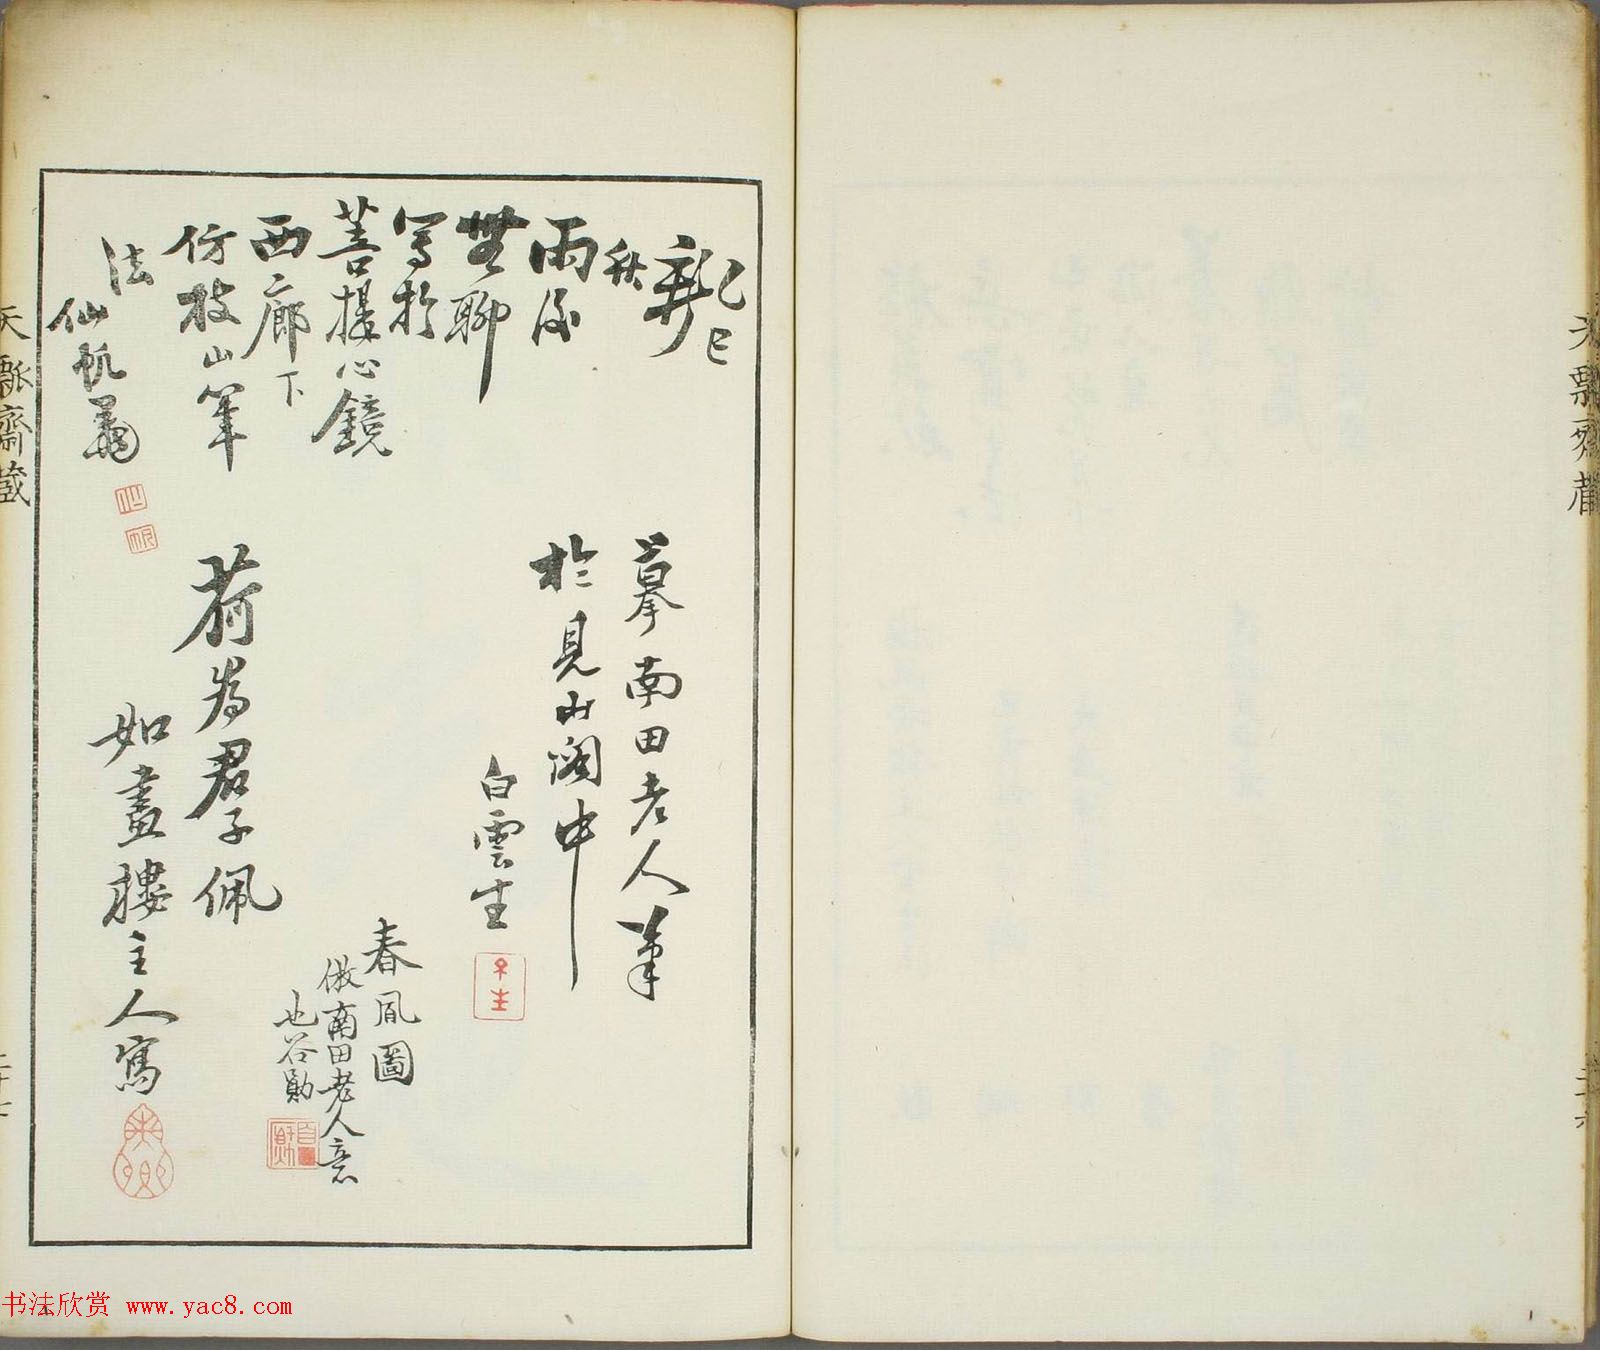 乙巳
秋
雨后
無聊
写於
菩提心鏡
西廊下
仿枝山筆
法
仙帆
摹南田老人筆
於見山閣中
白雲生
春風圖
倣南田老人意
也谷勛
荷為君子佩
如畫樓主人寫
天瓢齋藏
书法欣赏 www.yac8.com